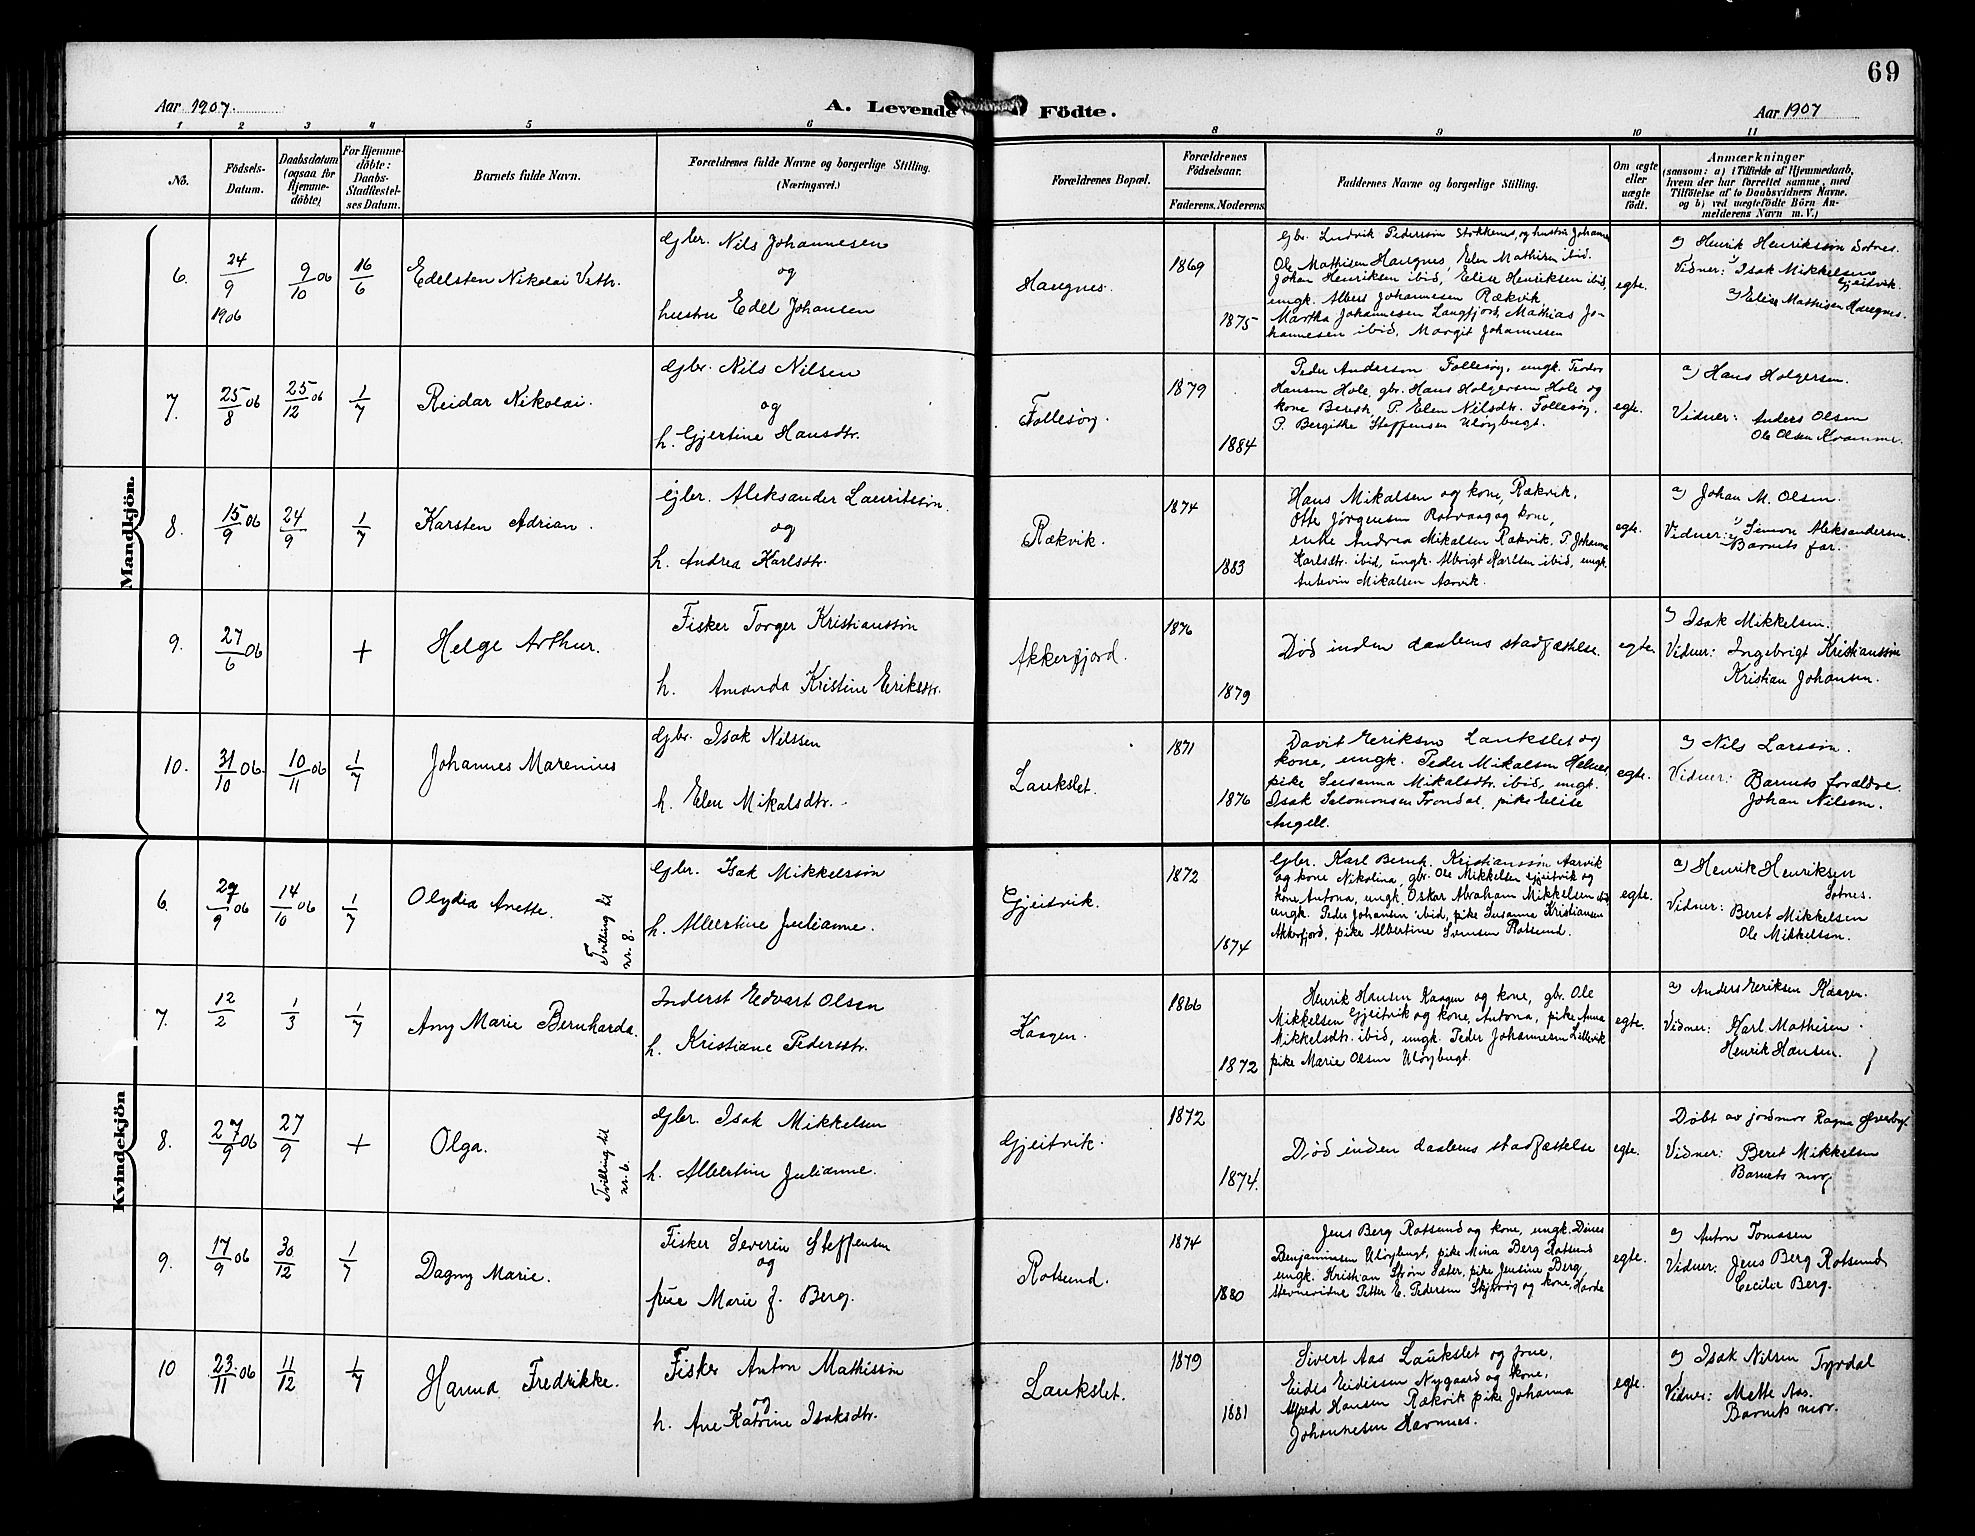 69
Aar 1907.
A. Levende Födte.
Aar 1907
1 2 3 4 5 6 8 9 10 11
No.
Födsels-
Datum.
Daabsdatum
(ogsaa for
Hjemme-
döbte)
For Hjemme-
döbte:
Daabs-
Stadfæstel-
ses Datum.
Barnets fulde Navn.
Forældrenes fulde Navne og borgerlige Stilling.
(Næringsvei.)
Forældrenes Bopæl.
Forældrenes
Födselsaar.
Faderens. Moderens.
Faddernes Navne og borgerlige Stilling.
Om ægte
eller
uægte
födt.
Anmærkninger
(saasom: a) i Tilfælde af Hjemmedaab,
hvem der har forrettet samme, med
Tilföielse af to Daabsvidners Navne.
og b) ved uægtefödte Börn An-
melderens Navn m. V.)
Mandkjön.
6.
24/9 1906
9/10 06
16/6
Edelsten Nikolai Vethr.
Gbr. Nils Johannesen
og
hustru Edel Johansen
Haugnes.
1869
1875
Gbr. Ludvik Pederssøn Stokkenes, og hustru Johanne
Ole Mathisen Haugnes, Elen Mathisen ibid.
Johan Henriksen ibid, Elise Henriksen ibid,
ungk. Albert Johannesen Rækvik,
Martha Johannesen Langfjord, Mathias Jo-
hannesen ibid, Margit Johannesen
egte.
a) Henrik Henrikssøn Sotnes.
Vidner: 1) Isak Mikkelsen
Gjeitvik.
2) Elise Mathisen Haugnes.
7.
25/8 06
25/12 06
1/7
Reidar Nikolai.
Gbr. Nils Nilsen
og
h. Gjertine Hansdtr.
Follesøy.
1879
1884
Peder Anderssen Follesøy, ungk. Teodor
Hansen Hole, gbr. Hans Holgersen Hole og
kone Bereth, P. Elen Nilsdtr. Follesøy,
P. Bergithe Steffensen Uløybugt.
egte.
a) Hans Holgersen.
Vidner: Anders Olsen
Ole Olsen Kvamme.
8.
15/9 06
24/9
1/7
Karsten Adrian.
Gbr. Aleksander Lauritssøn
og
h. Andrea Karlsdtr.
Rækvik.
1874
1883
Hans Mikalsen og kone, Rækvik,
Otte Jørgensen Rotvaag og kone,
enke Andrea Mikalsen Rækvik, P. Johanna
Karlsdtr. ibid, ungk. Albrigt Karlsen ibid, ungk.
Antevin Mikalsen Aarvik.
egte.
a) Johan M. Olsen.
Vidner: 1) Simon Aleksandersen.
2) Barnets far.
9.
27/6 06
+
Helge Arthur.
Fisker Torger Kristianssøn
h. Amanda Kristine Eriksdtr.
Akkerfjord.
1876
1879
Død inden daabens stadfæstelse.
egte.
a) Isak Mikkelsen.
Vidner: Ingebrigt Kristianssøn
Kristian Johansen.
10.
31/10 06.
10/11 06
1/7
Johannes Marenius
Gbr. Isak Nilssen
h. Elen Mikalsdtr.
Laukslet.
1871
1876
Davit Eriksen Laukslet og
kone, ungk. Peder Mikalsen Helnes,
pike Susanna Mikalsdtr. ibid, ungk.
Isak Salomonsen Trondal, pike Elise
Angell.
egte.
a) Nils Larssøn.
Vidner: Barnets forældre.
Johan Nilsen.
Kvindekjön
6.
27/9 06
14/10 06
1/7
Olydia Anette.
Tvilling til
nr. 8.
Gbr. Isak Mikkelssøn
h. Albertine Julianne.
Gjeitvik.
1872
1874
Gbr. Karl Bernh. Kristianssøn Aarvik
og kone Nikolina, gbr. Ole Mikkelsen Gjeitvik og
kone Antona, ungk. Oskar Abraham Mikkelsen ibid
ungk. Peder Johansen ibid, pike Susanna Kristiansen
Akkerfjord, pike Albertine Svensen Rotsund.
egte.
a) Henrik Henriksen
Sotnes.
Vidner: Beret Mikkelsen
Ole Mikkelsen.
7.
12/2
1/3
1/7
Amy Marie Bernharda.
Inderst Edvart Olsen
h. Kristiane Pedersdtr.
Kaagen.
1866
1872
Henrik Hansen Kaagen og kone, gbr. Ole
Mikkelsen Gjeitvik og kone, Antona, pike Anna
Mikkelsdtr. ibid, ungk. Peder Johannesen Lillevik
pike Marie Olsen Uløybugt.
egte.
a) Anders Eriksen Kaagen.
Vidner: Karl Mathisen
Henrik Hansen.
8.
27/9 06
27/9
+
Olga.
Tvilling til
nr. 6.
Gbr. Isak Mikkelsen
h. Albertine Julianne.
Gjeitvik.
1872
1874.
Død inden daabens stadfæstelse
egte.
Døbt av jordmor Ragna Øverby.
Vidner: Beret Mikkelsen
Barnets mor
9.
17/9 06
30/12
1/7
Dagny Marie.
Fisker Severin Steffensen
og
frue Marie f. Berg.
Rotsund.
1874
1880
Jens Berg Rotsund og kone, ungk. Dines
Benjaminsen Uløybugt, pike Mina Berg Rotsund
ungk. Kristian Strøm Sæter, pike Jensine Berg,
stevnevidne Petter E. Pedersen Skjervøy og kone, Havde
egte.
a) Anton Tomassen
Vidner: Jens Berg Rotsund
Cecilie Berg.
10
23/11 06
11/12
1/7
Hanna Fredrikke.
Fisker Anton Mathissøn
og
h. Ane Katrine Isaksdtr.
Laukslet.
1879
1881
Sivert Aas Laukslet og frue,
Eidis Eidissen Nygaard og kone,
Alfred Hansen Rækvik pike Johanna
Johannesen Havnnes.
egte.
a) Isak Nilsen Tyrdal
Vidner: Mette Aas.
Barnets mor.